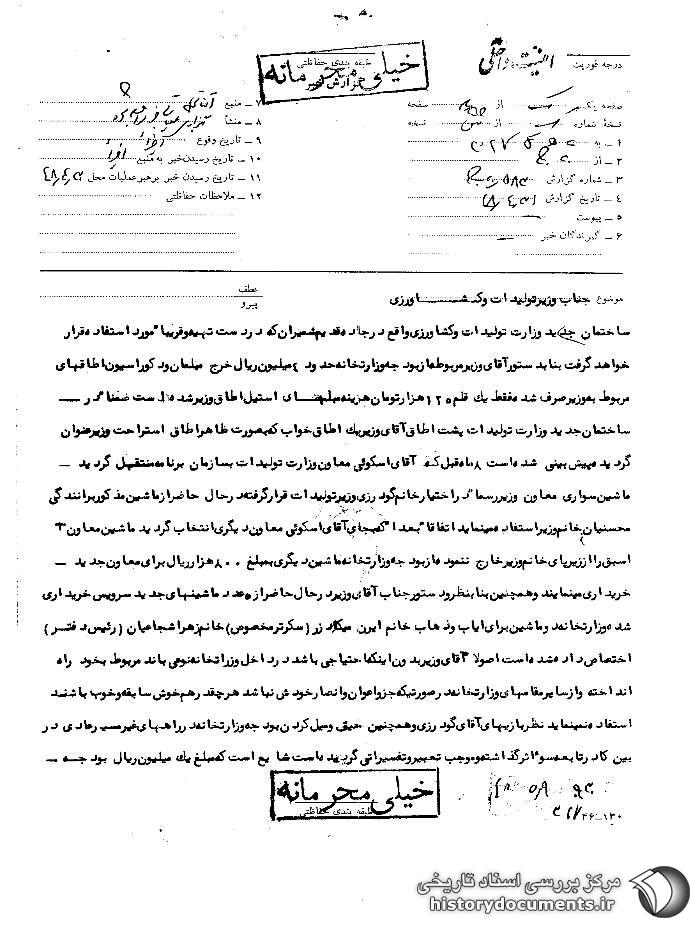 خیلی محرمانه
طبقه بندی حفاظتی
گزارش خبر
درجه فوریت
صفحه یک از صفحه
نسخهٔ شماره از نسخه
۱ ـ به
۲ ـ از
۳ ـ شماره گزارش
۴ ـ تاریخ گزارش
۵ ـ پیوست
۶ ـ گیرندگان خبر
۷ ـ منبع
۸ ـ منشأ
۹ ـ تاریخ وقوع
۱۰ ـ تاریخ رسیدن خبر به منبع
۱۱ ـ تاریخ رسیدن خبر برهبر عملیات محل
۱۲ ـ ملاحظات حفاظتی
موضوع جناب وزیر تولیدات و کشاورزی
عطف
پیرو
ساختمان جدید وزارت تولیدات و کشاورزی واقع در جاده قدیم شمیران که در دست تهیه و قریبا" مورد استفاده قرار
خواهد گرفت بنا بدستور آقای وزیر مربوطه از بودجه وزارتخانه حدود ۴ میلیون ریال خرج مبلمان و دکوراسیون اطاقهای
مربوط به وزیر صرف شده فقط یک قلم ۱۲۰ هزار تومان هزینه مبلهای استیل اطاق وزیر شده است ضمنا" در ـــ
ساختمان جدید وزارت تولیدات پشت اطاق آقای وزیر یک اطاق خواب که بصورت ظاهر اطاق استراحت وزیر عنوان
گردیده پیش بینی شده است ۸ ماه قبل که آقای اسکوئی معاون وزارت تولیدات بسازمان برنامه منتقل گردید ـ
ماشین سواری معاون وزیر رسما" در اختیار خانم گودرزی وزیر تولیدات قرار گرفته در حال حاضر از ماشین مذکور برانندگی
محسنیان خانم وزیر استفاده مینماید اتفاقا" بعدا" که بجای آقای اسکوئی معاون دیگری انتخاب گردید ماشین معاون
اسبق را از زیر پای خانم وزیر خارج ننموده از بودجه وزارتخانه ماشین دیگری بمبلغ ۸۰۰ هزار ریال برای معاون جدید ـ
خریداری مینمایند و همچنین بنا بنظر و دستور جناب آقای وزیر در حال حاضر از ماشینهای جدید سرویس خریداری
شده وزارتخانه دو ماشین برای ایاب و ذهاب خانم ایرن میکادزر (سکرتر مخصوص) خانم زهرا شجاعیان (رئیس دفتر)
اختصاص داده شده است اصولا" آقای وزیر بدون اینکه احتیاجی باشد در داخل وزارتخانه نوعی باند مربوط بخود راه
انداخته و از سایر مقامهای وزارتخانه در صورتیکه جزو اعوان و انصار خودش نباشد هرچقدر هم خوش سابقه و خوب باشند
استفاده نمینماید نظر بازیهای آقای گودرزی و همچنین حیف و میل کردن بودجه وزارتخانه در راههای غیر مسیر عادی در
بین کادر تابعه سوء اثر گذاشته و موجب تعبیر و تفسیراتی گردیده است شایع است که مبلغ یک میلیون ریال بودجه ـ
خیلی محرمانه
طبقه بندی حفاظتی
مرکز بررسی اسناد تاریخی
historydocuments.ir